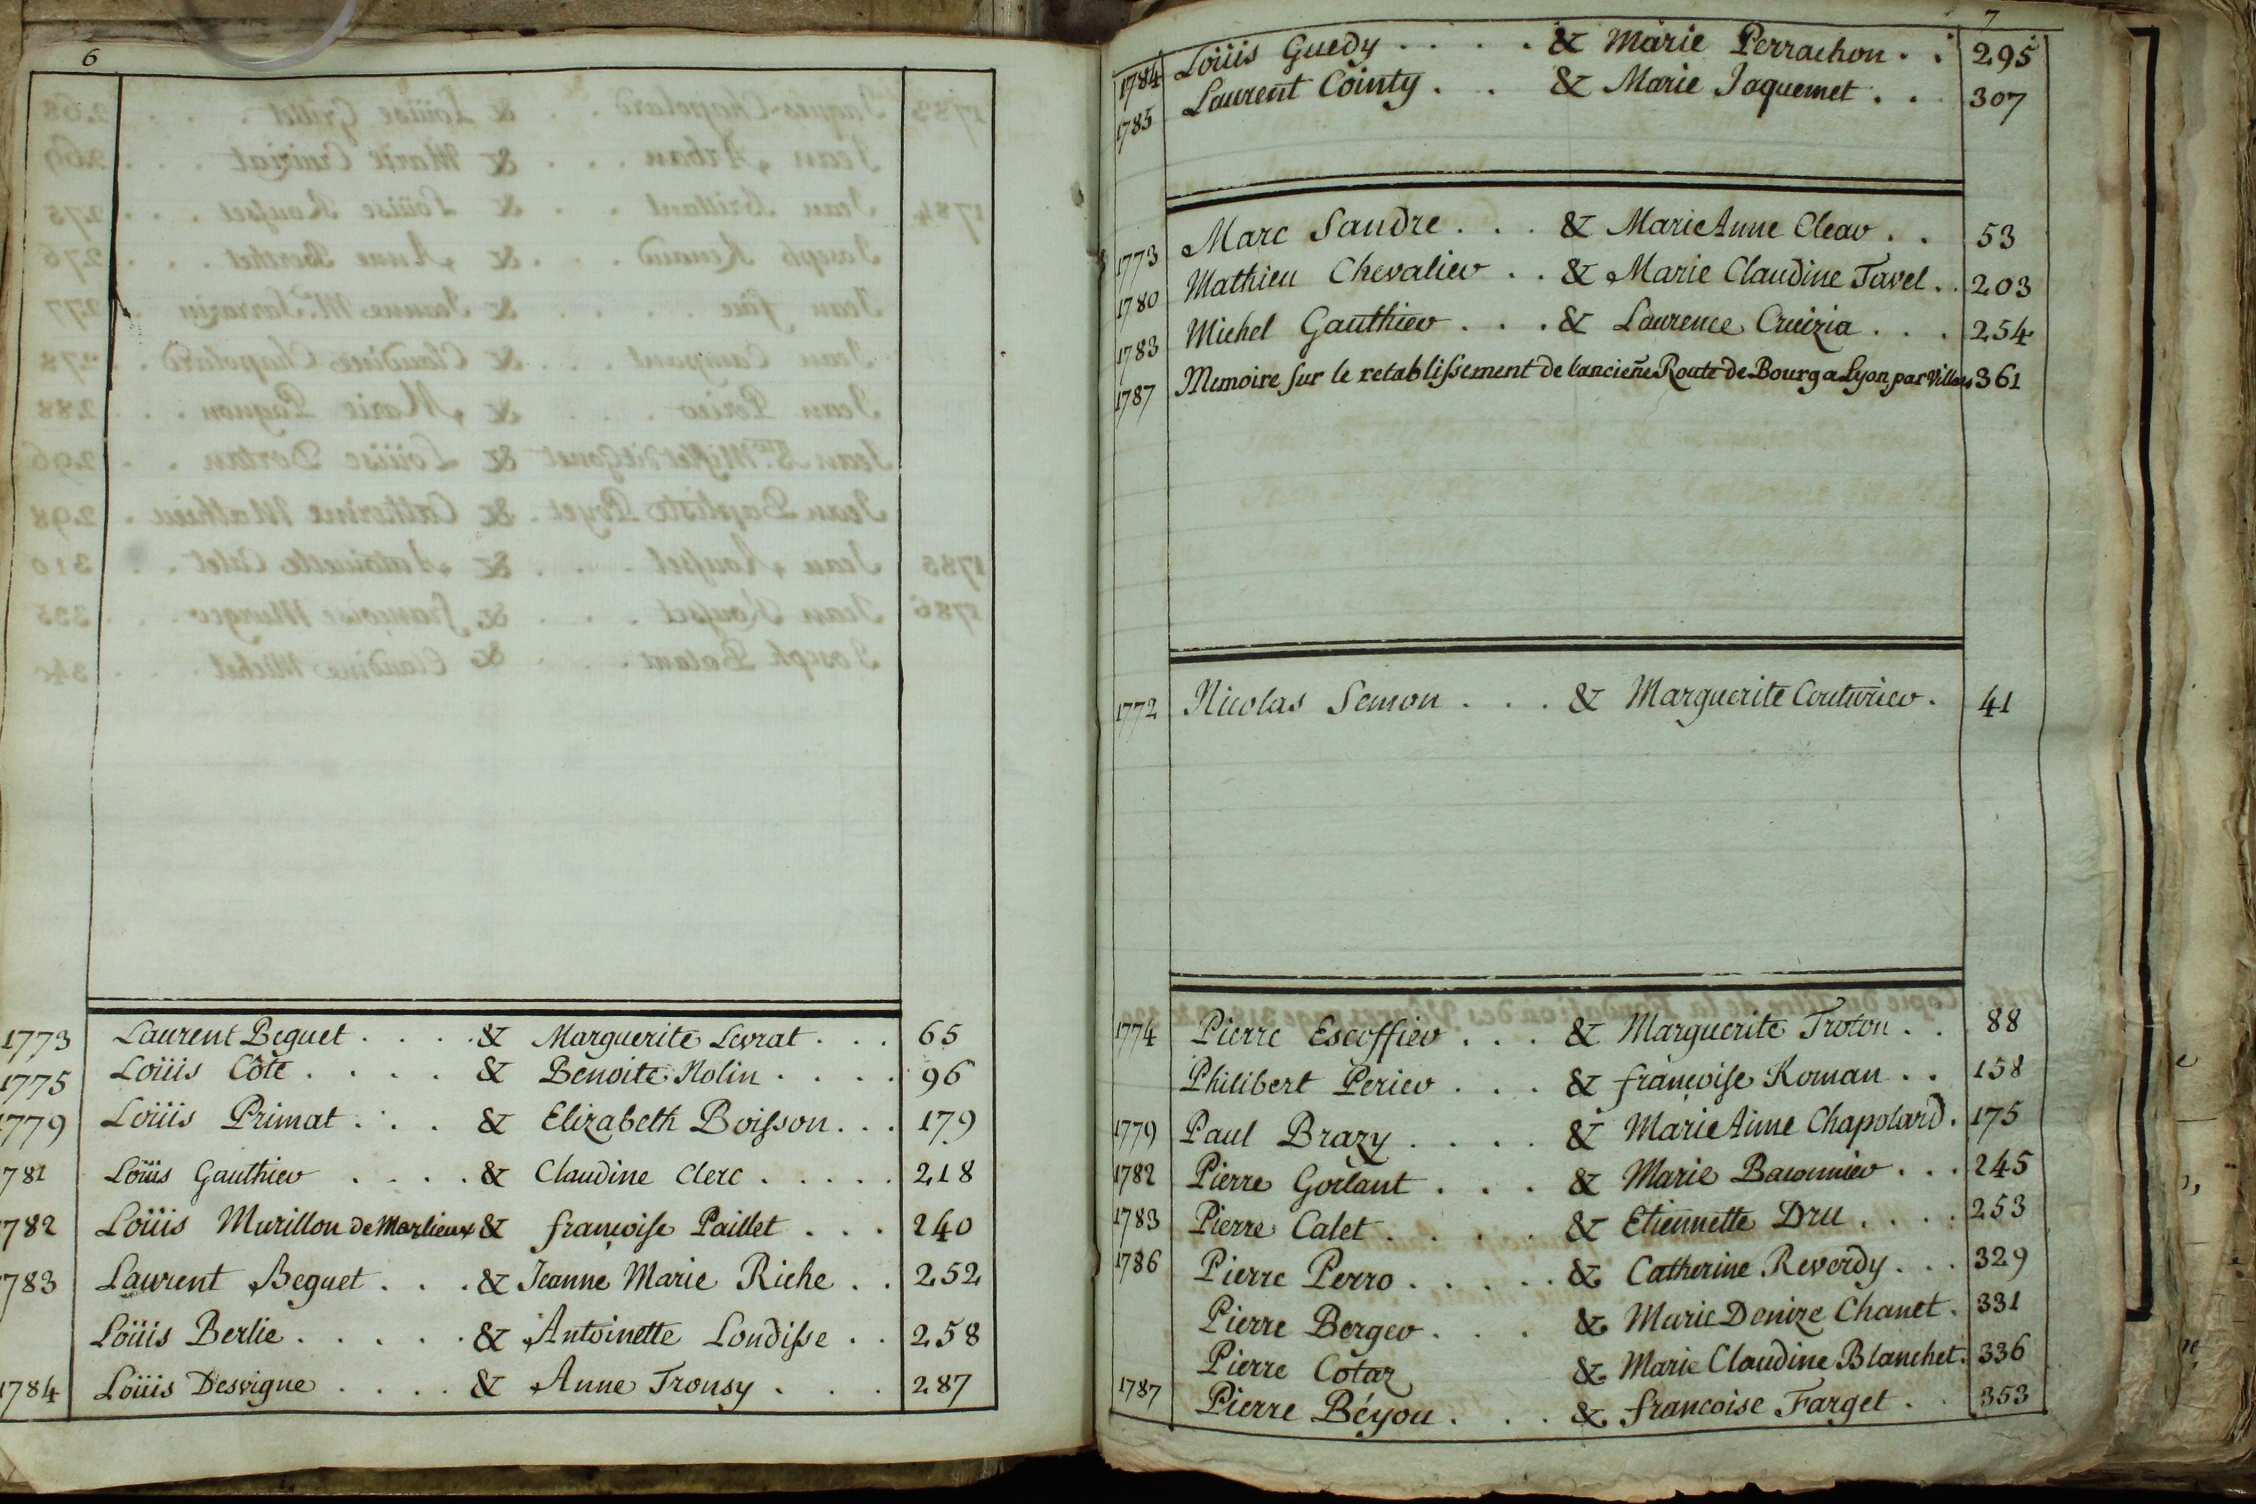 6
1773 Laurent Beguet . . . . & Marguerite Levrat . . . 65
1775 Loüis Côte . . . . & Benoite Nolin . . . . 96
1779 Loüis Primat . . . & Elizabeth Boisson . . . 179
1781 Loüis Gauthier . . . . & Claudine Clerc . . . . . 218
1782 Loüis Murillon de Marlieux & françoise Paillet . . . 240
1783 Laurent Beguet . . . & Jeanne Marie Riche . . 252
Loüis Berlie . . . . . & Antoinette Londisse . . 258
1784 Loüis Desvigne . . . . & Anne Tronsy . . . 287
7
1784 Loüis Guedy . . . . & Marie Perrachon . . 295
1785 Laurent Cointy . . & Marie Jaquemet . . 307
1773 Marc Sandre . . . & Marie Anne Clear . . 53
1780 Mathieu Chevalier . . & Marie Claudine Tavel . . 203
1783 Michel Gauthier . . . & Laurence Cruizia . . . 254
1787 Memoire sur le retablissement de l'anciene Route de Bourg a Lyon par Villars 361
1772 Nicolas Semon . . . & Marguerite Couturier . 41
1774 Pierre Escoffier . . . & Marguerite Troton . . 88
Philibert Perier . . . & françoise Roman . . 158
1779 Paul Brazy . . . . & Marie Aime Chapolard . 175
1782 Pierre Gorlant . . . & Marie Baconnier . . . 245
1783 Pierre Calet . . . . . & Etiennette Dru . . . . 253
1786 Pierre Perro . . . . . & Catherine Reverdy . . . 329
Pierre Berger . . . & Marie Denize Chanet . 331
Pierre Cotaz & Marie Claudine Blanchet . 336
1787 Pierre Béyou . . . & francoise Farget . . 353